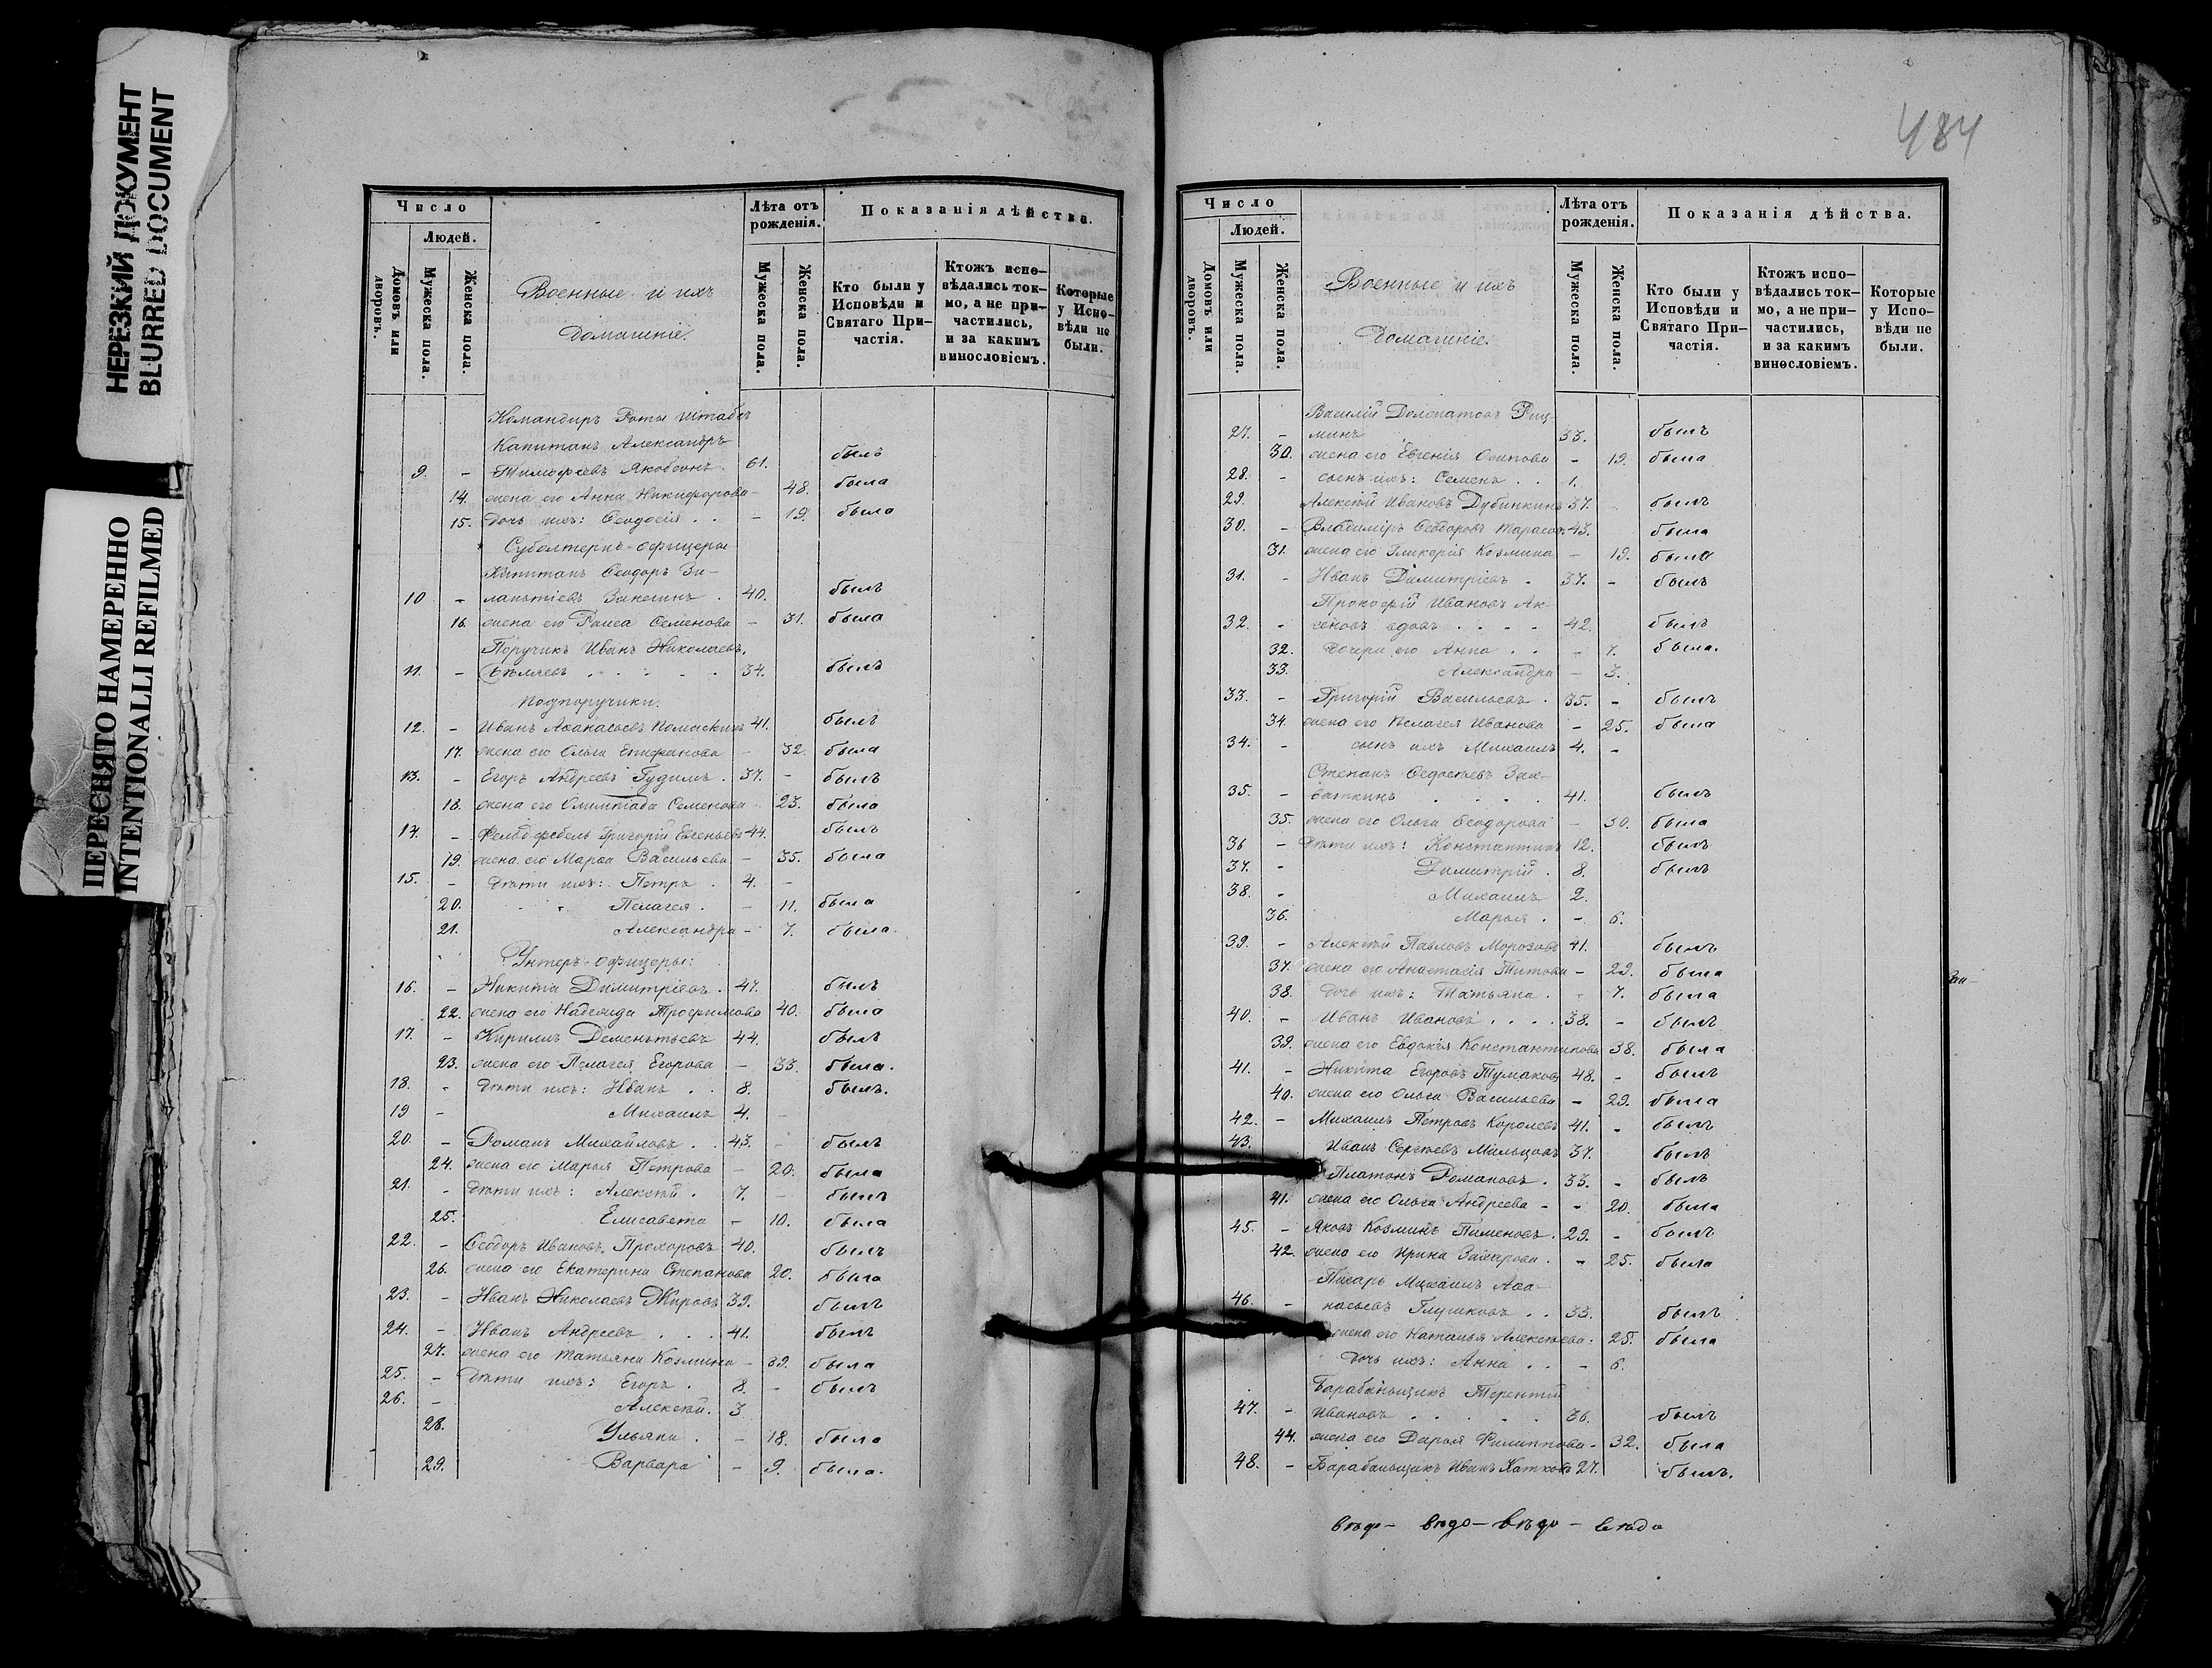 НЕРЕЗКИЙ ДОКУМЕНТ
BLURRED DOCUMENT
ПЕРЕСНЯТО НАМЕРЕННО
INTENTIONALLI REFILMED
Число
Людей.
Домовъ или дворовъ.
Мужеска пола.
Женска пола.
Военные и ихъ
Домашніе.
Лѣта отъ рожденія.
Мужеска пола.
Женска пола.
Показанія дѣйства.
Кто были у Исповѣди и Святаго Причастія.
Ктожъ исповѣдались токмо, а не причастились, и за какимъ винословіемъ.
Которые у Исповѣди не были.
Командиръ Роты штабсъ
Капитанъ Александръ
9. - Тимофеевъ Якобсонъ. 61. былъ
14. жена его Анна Никифорова - 48. была
15. дочь ихъ: Феодосія . . - 19. была
Субалтернъ-офицеры
Капитанъ Феодоръ
10 - 40. былъ
16. жена его Раиса Семенова - 31. была
Поручикъ Иванъ Николаевъ
11. - Бѣляевъ . . . . . 34. былъ
Подпоручики.
12. - Иванъ Аѳанасьевъ 41. былъ
17. жена его Ольга Епифанова - 32. была
13. - Егоръ Андреевъ Гудимъ . 37. - былъ
18. жена его Олимпіада Семенова - 23. была
14. - Фельдфебель Григорій Евгеньевъ 44. былъ
19. жена его Марѳа Васильева - 35. была
15. - дѣти ихъ: Петръ . 4. -
20. Пелагея . - 11. была
21. Александра - 7. была.
Унтеръ-офицеры:
16. - Никита Димитріевъ . 47. былъ
22. жена его Надежда Трофимова 40. была
17. - Кирилъ Дементьевъ 44. былъ
23. жена его Пелагея Егорова - 33. была.
18. - дѣти ихъ: Иванъ . . 8. былъ.
19 - Михаилъ 4. -
20. - Романъ Михайловъ . . 43. - былъ
24. жена его Марья Петрова - 20. была
21. - дѣти ихъ: Алексѣй . 7. - былъ
25. Елисавета - 10. была
22. - Феодоръ Ивановъ Прохоровъ 40. былъ
26. жена его Екатерина Степанова 20. была
23. - Иванъ Николаевъ Жировъ 39. былъ
24. - Иванъ Андреевъ . . . 41. былъ
27. жена его Татьяна Козмина - 39. была
25. - дѣти ихъ: Егоръ . 8. - былъ
26. - Алексѣй. 3
28. Ульяна . - 18. была
29. Варвара - 9. была.
484
Число
Людей.
Домовъ или дворовъ.
Мужеска пола.
Женска пола.
Военные и ихъ
Домашніе.
Лѣта отъ рожденія.
Мужеска пола.
Женска пола.
Показанія дѣйства.
Кто были у Исповѣди и Святаго Причастія.
Ктожъ исповѣдались токмо, а не причастились, и за какимъ винословіемъ.
Которые у Исповѣди не были.
Василій
27. - минъ 33. былъ
30. жена его Евгенія Осипова - 19. была
28. - сынъ ихъ: Семенъ . . 1.
29. Алексѣй Ивановъ Дубинкинъ 37. былъ
30. - Владиміръ Феодоровъ Тарасовъ 43. была
31. жена его Гликерія Козмина - 19. была
31. - Иванъ Димитріевъ . 37. - былъ
Прокофій Ивановъ Ак-
32. - сеновъ вдовъ . . . - 42. былъ
32. дочери его Анна . . - 7. была.
33. Александра - 3.
33. - Григорій Васильевъ . 35. - былъ
34. жена его Пелагея Иванова - 25. была
34. - сынъ ихъ Михаилъ 4. -
Степанъ Федосѣевъ Зах-
35. - ваткинъ . . . . 41. былъ
35. жена его Ольга Феодорова - 30. была
36 - Дѣти ихъ: Константинъ 12. былъ
37. - Димитрій . 8. былъ
38. - Михаилъ 2.
36. Марья . - 6.
39. - Алексѣй Павловъ Морозовъ 41. былъ
37. жена его Анастасія Титова - 29. была
38. дочь ихъ: Татьяна . - 7. была
40. - Иванъ Ивановъ . . . . 38. - былъ
39. жена его Евдокія Константинова 38. была
41. - Никита Егоровъ Тумаковъ 48. - былъ
40. жена его Ольга Васильева - 29. была
42. - Михаилъ Петровъ Королевъ 41. - былъ
43. Иванъ Сергѣевъ Мальцовъ 37. былъ
Платонъ Романовъ . 33. - былъ
41. жена его Ольга Андреева - - 20. была
45. - Яковъ Козминъ Пименовъ . 29. - былъ
42. жена его Ирина Захарова . - 25. была
Писарь Михаилъ Аѳа-
46. - насьевъ Глушковъ . . 33. былъ
жена его Наталья Алексѣева: 25. была
дочь ихъ: Анна . . - 6.
Барабанщикъ Терентій
47. - Ивановъ . . . . . 36. былъ
44. жена его Дарья Филиппова - 32. была
48. - Барабанщикъ Иванъ Хатковъ 27. былъ.